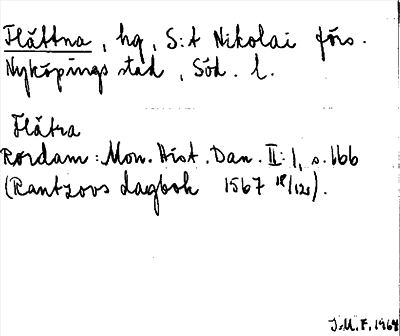 Flättna, hg, S:t Nikolai förs.
Nyköpings stad, Söd. l.
Flätra
Rørdam: Mon. Hist. Dan. II: 1, s. 166
(Rantzovs dagbok 1567 18/12).
J.M.F. 1964